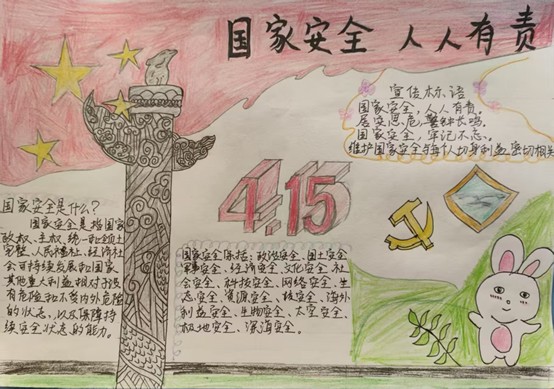 国家安全 人人有责
宣传标语
国家安全,人人有责。
居安思危,警钟长鸣。
国家安全,牢记不忘。
维护国家安全与每个人切身利益密切相关
4.15
国家安全是什么?
国家安全是指国家
政权、主权、统一和领土
完整、人民福祉、经济社
会可持续发展和国家
其他重大利益相对于没
有危险和不受内外危险
的状态,以及保障持
续安全状态的能力。
国家安全包括:政治安全、国土安全
军事安全、经济安全、文化安全、社
会安全、科技安全、网络安全、生
态安全、资源安全、核安全、海外
利益安全、生物安全、太空安全、
极地安全、深海安全。